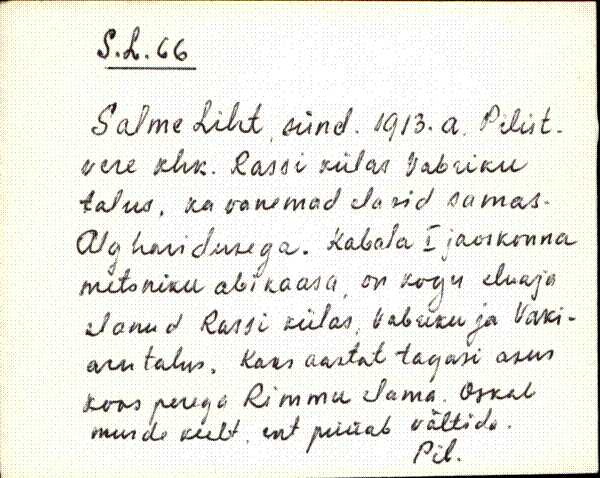 S.L.66
Salme Liht, sünd. 1913. a. Pilist-
vere khk. Rassi külas Vabriku
talus, ka vanemad elasid samas.
Algharidusega. Kabala I jaoskonna
metsniku abikaasa, on kogu eluaja
elanud Rassi külas, Vabriku ja Vaki-
aru talus. Kaks aastat tagasi asus
koos perega Rimmu elama. Oskab
murde keelt, ent püüab vältida.
Pil.